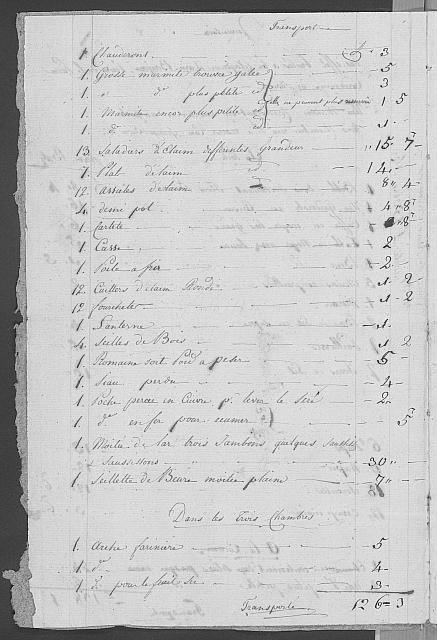 Transport
1. Chauderont 3
1. Grosse marmitte trouvée gatée 5
1. " d.° plus petite 3
1. Marmitte encor plus petite elle ne peuvent plus 1 5
1. d.°
13. Saladiers d'Etaim differentes grandeur 15 7
7. Plat d'etaim 14
12. assiates d'etaim 8 4
4. demi pot 4 8
1. 8
1. Casse 2
1. Poele a frir 2
12. Cuillers d'etaim Ronde 1 2
12 fourchetes 1 2
1. Lanterne 1
4. Seilles de Bois 1 2
1. Romaine soit Poid a peser 5
1. Seau perdu 4
1. Poche percée en Cuivre p. lever le 2
1. d.° en fer pour ecumer 5
1. Moitié de lar trois Jambons quelques
Saussissons 30
1. Seillette de Beure moitée plaine 7
Dans les Trois Chambres
1. Arche farinière 5
1. d.° 4
1. d.° pour le 3
Transporté 126 3